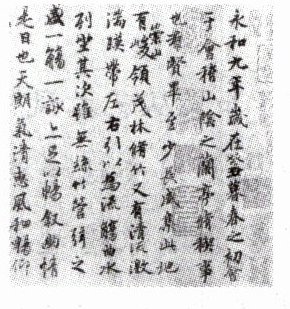 永和九年歲在癸丑暮春之初會
于會稽山陰之蘭亭脩稧事
也羣賢畢至少長咸集此地
有崇山峻領茂林脩竹又有清流激
湍暎帶左右引以為流觴曲水
列坐其次雖無絲竹管弦之
盛一觴一詠亦足以暢敘幽情
是日也天朗氣清惠風和暢仰